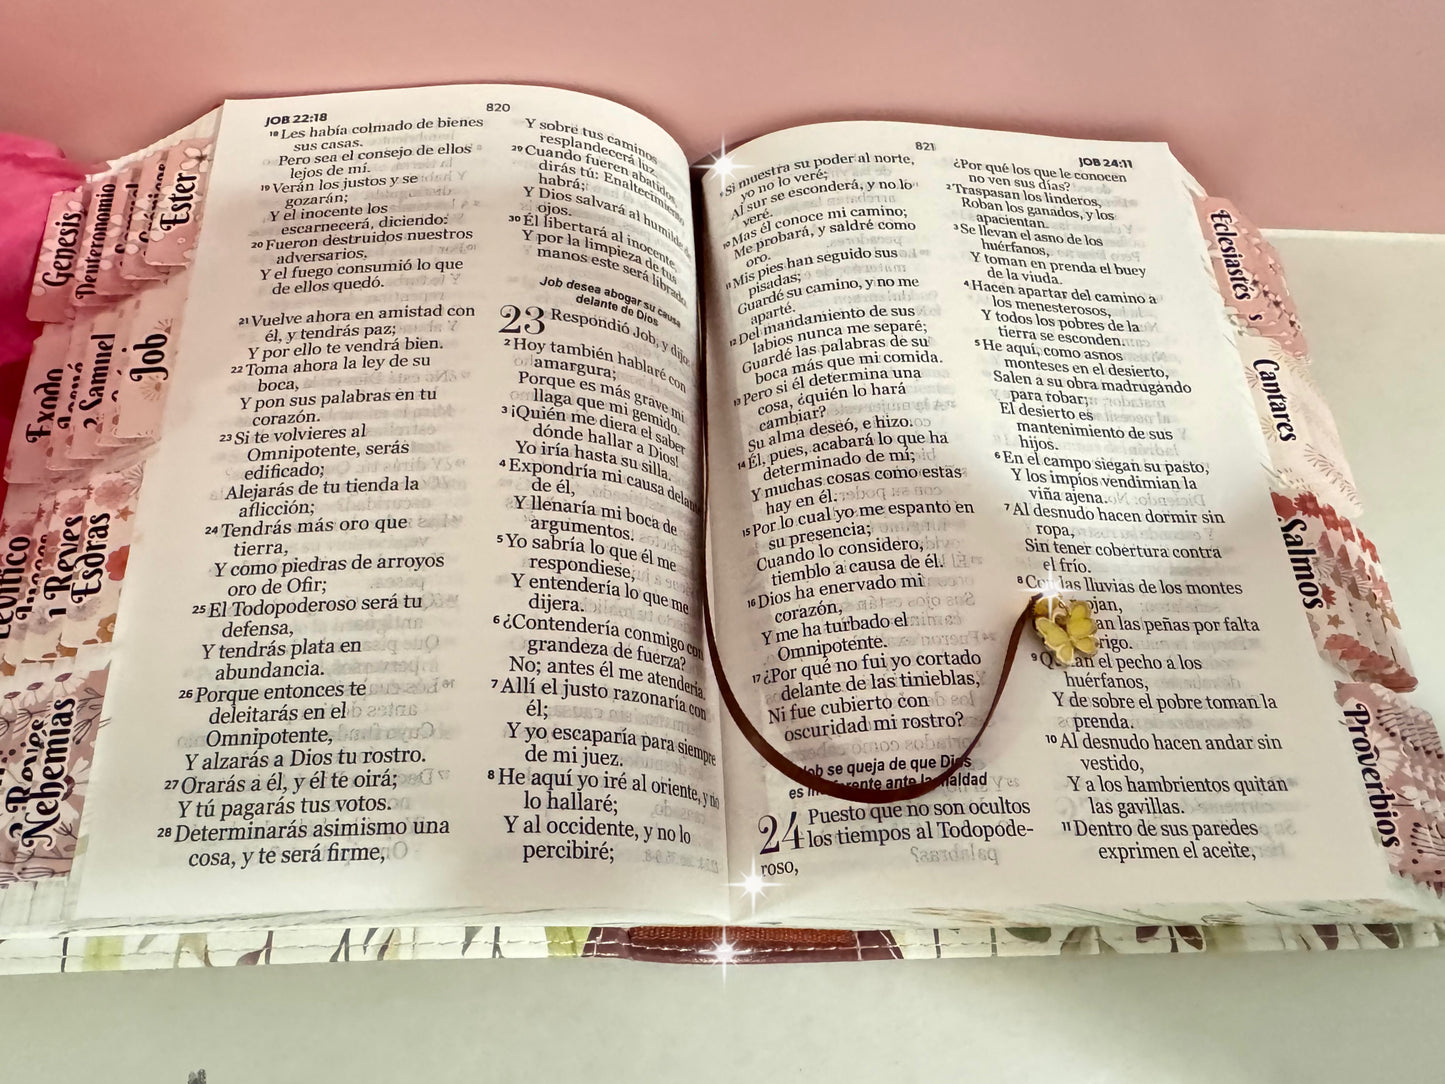 JOB 22:18
820
18 Les había colmado de bienes
sus casas.
Pero sea el consejo de ellos
lejos de mí.
19 Verán los justos y se
gozarán;
Y el inocente los
escarnecerá, diciendo:
20 Fueron destruidos nuestros
adversarios,
Y el fuego consumió lo que
de ellos quedó.
21 Vuelve ahora en amistad con
él, y tendrás paz;
Y por ello te vendrá bien.
22 Toma ahora la ley de su
boca,
Y pon sus palabras en tu
corazón.
23 Si te volvieres al
Omnipotente, serás
edificado;
Alejarás de tu tienda la
aflicción;
24 Tendrás más oro que
tierra,
Y como piedras de arroyos
oro de Ofir;
25 El Todopoderoso será tu
defensa,
Y tendrás plata en
abundancia.
26 Porque entonces te
deleitarás en el
Omnipotente,
Y alzarás a Dios tu rostro.
27 Orarás a él, y él te oirá;
Y tú pagarás tus votos.
28 Determinarás asimismo una
cosa, y te será firme,
Y sobre tus caminos
resplandecerá luz.
29 Cuando fueren abatidos,
dirás tú: Enaltecimiento
habrá;
Y Dios salvará al humilde de
ojos.
30 Él libertará al inocente,
Y por la limpieza de tus
manos este será librado.
Job desea abogar su causa
delante de Dios
23 Respondió Job, y dijo:
2 Hoy también hablaré con
amargura;
Porque es más grave mi
llaga que mi gemido.
3 ¡Quién me diera el saber
dónde hallar a Dios!
Yo iría hasta su silla.
4 Expondría mi causa delante
de él,
Y llenaría mi boca de
argumentos.
5 Yo sabría lo que él me
respondiese,
Y entendería lo que me
dijera.
6 ¿Contendería conmigo con
grandeza de fuerza?
No; antes él me atendería.
7 Allí el justo razonaría con
él;
Y yo escaparía para siempre
de mi juez.
8 He aquí yo iré al oriente, y no
lo hallaré;
Y al occidente, y no lo
percibiré;
821
JOB 24:11
9 Si muestra su poder al norte,
yo no lo veré;
Al sur se esconderá, y no lo
veré.
10 Mas él conoce mi camino;
Me probará, y saldré como
oro.
11 Mis pies han seguido sus
pisadas;
Guardé su camino, y no me
aparté.
12 Del mandamiento de sus
labios nunca me separé;
Guardé las palabras de su
boca más que mi comida.
13 Pero si él determina una
cosa, ¿quién lo hará
cambiar?
Su alma deseó, e hizo.
14 Él, pues, acabará lo que ha
determinado de mí;
Y muchas cosas como estas
hay en él.
15 Por lo cual yo me espanto en
su presencia;
Cuando lo considero,
tiemblo a causa de él.
16 Dios ha enervado mi
corazón,
Y me ha turbado el
Omnipotente.
17 ¿Por qué no fui yo cortado
delante de las tinieblas,
Ni fue cubierto con
oscuridad mi rostro?
Job se queja de que Dios
es ante la maldad
24 Puesto que no son ocultos
los tiempos al Todopode-
roso,
¿Por qué los que le conocen
no ven sus días?
2 Traspasan los linderos,
Roban los ganados, y los
apacientan.
3 Se llevan el asno de los
huérfanos,
Y toman en prenda el buey
de la viuda.
4 Hacen apartar del camino a
los menesterosos,
Y todos los pobres de la
tierra se esconden.
5 He aquí, como asnos
monteses en el desierto,
Salen a su obra madrugando
para robar;
El desierto es
mantenimiento de sus
hijos.
6 En el campo siegan su pasto,
Y los impíos vendimian la
viña ajena.
7 Al desnudo hacen dormir sin
ropa,
Sin tener cobertura contra
el frío.
8 Con las lluvias de los montes
las peñas por falta
9 el pecho a los
huérfanos,
Y de sobre el pobre toman la
prenda.
10 Al desnudo hacen andar sin
vestido,
Y a los hambrientos quitan
las gavillas.
11 Dentro de sus paredes
exprimen el aceite,
Genesis
Deuteronomio
Ester
Exodo
2 Samuel
Job
1 Reyes
Esdras
Nehemias
Eclesiastés
Cantares
Salmos
Proverbios